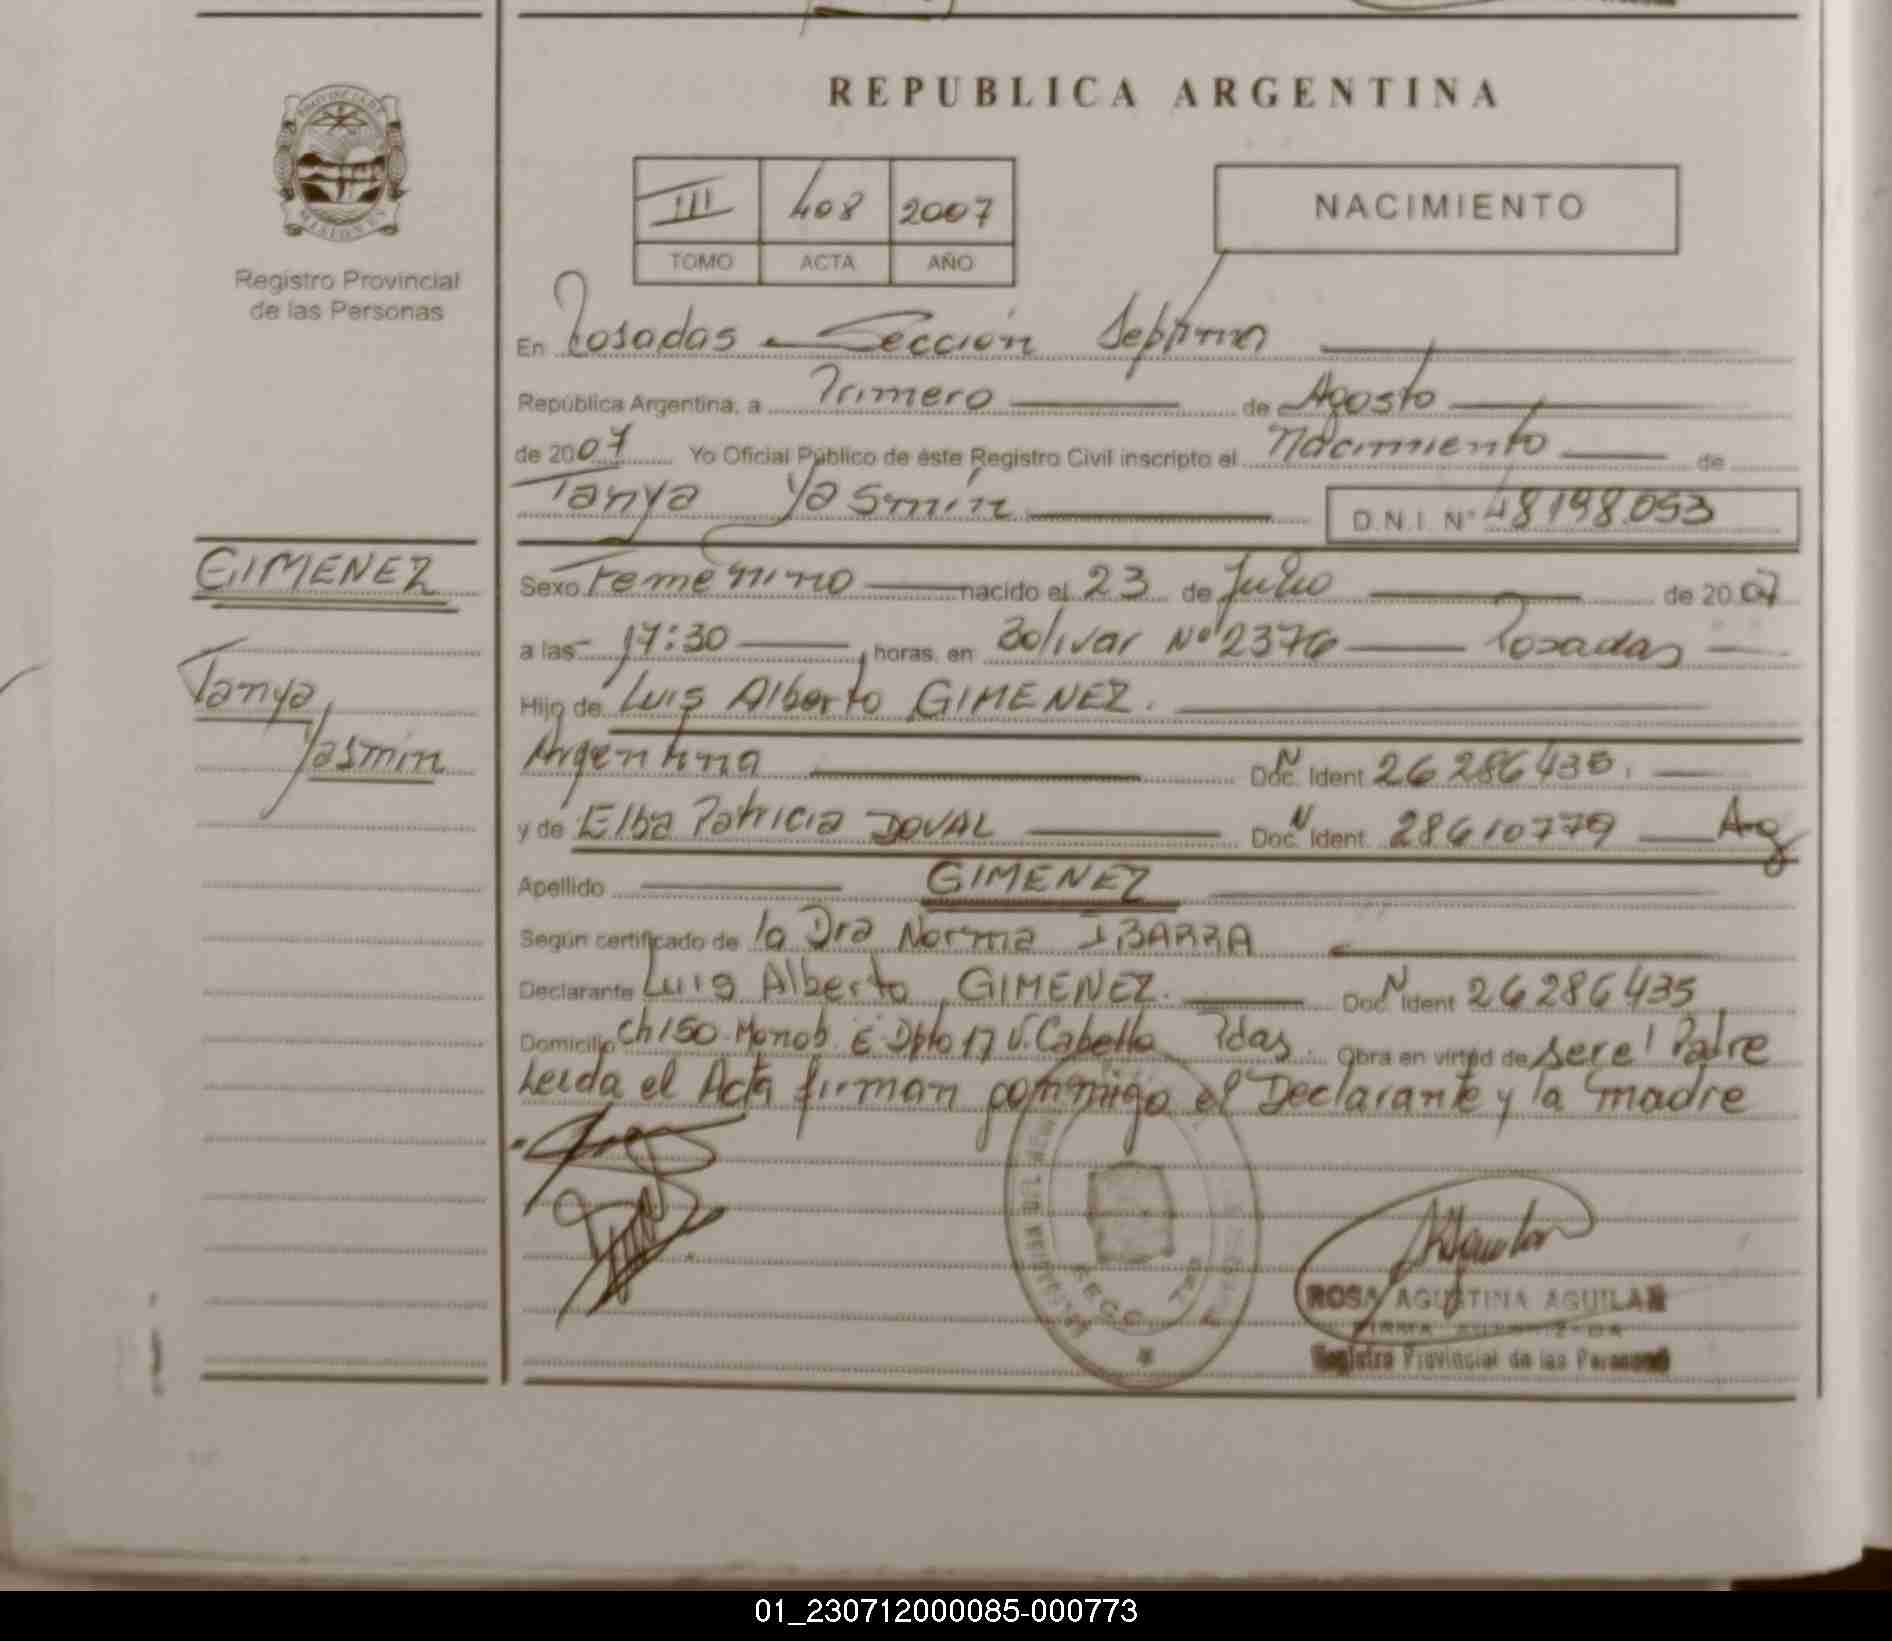 REPUBLICA ARGENTINA
PROVINCIA DE
MISIONES
Registro Provincial
de las Personas
III 408 2007
TOMO ACTA AÑO
NACIMIENTO
En Posadas - Sección Septima
República Argentina, a Primero de Agosto
de 2007 Yo Oficial Público de éste Registro Civil inscripto el Nacimiento de
Tanya Yasmín D.N.I. Nº 48198.053
GIMENEZ
Tanya
Yasmin
Sexo Femenino nacido el 23 de Julio de 2007
a las 17:30 horas, en Bolivar Nº 2376 Posadas
Hijo de Luis Alberto GIMENEZ.
Argentina Doc. Ident 26286435.
y de Elba Patricia DOVAL Doc. Ident. 28610779 Arg
Apellido GIMENEZ
Según certificado de la Dra Norma IBARRA
Declarante Luis Alberto GIMENEZ. Doc. Ident 26286435
Domicilio Ch 150 Monob. E Dpto 17 V. Cabello Pdas. Obra en virtud de ser el Padre
Leida el Acta firman conmigo el Declarante y la madre
ROSA AGUSTINA AGUILAR
FIRMA AUTORIZADA
Registro Provincial de las Personas
01_230712000085-000773